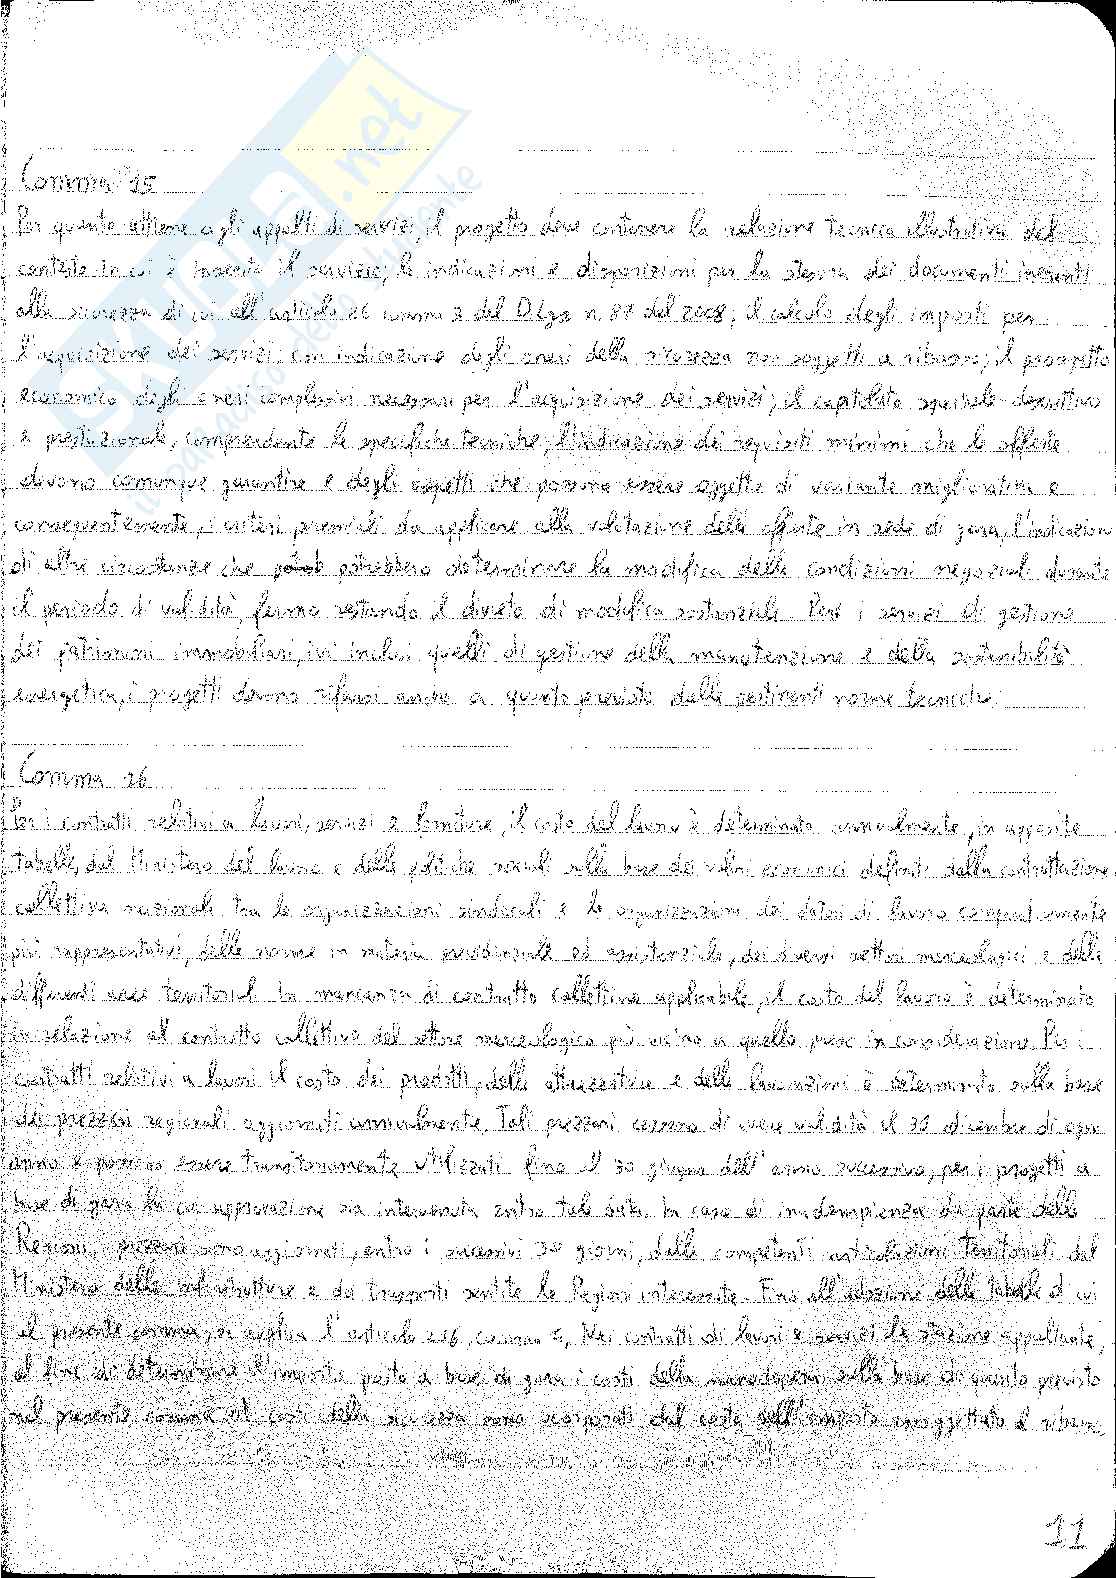 Comma 15
Per quanto attiene agli appalti di servizi, il progetto deve contenere la relazione tecnica illustrativa del
contesto in cui è inserito il servizio; le indicazioni e disposizioni per la stesura dei documenti inerenti
alla sicurezza di cui all'articolo 26 comma 3 del D.Lgs n. del 2008; il calcolo degli importi per
l'acquisizione dei servizi, con indicazione degli oneri della sicurezza non soggetti a ribasso; il prospetto
economico degli oneri complessivi necessari per l'acquisizione dei servizi; il capitolato speciale descrittivo
e prestazionale, comprendente le specifiche tecniche, l'indicazione dei requisiti minimi che le offerte
devono comunque garantire e degli aspetti che possono essere oggetto di variante migliorativa e
conseguentemente, i criteri premiali da applicare alla valutazione delle offerte in sede di gara, l'indicazione
di altre circostanze che potrebbero determinare la modifica delle condizioni negoziali durante
il periodo di validità, fermo restando il divieto di modifica sostanziale. Per i servizi di gestione
dei patrimoni immobiliari, ivi inclusi quelli di gestione della manutenzione e della sostenibilità
energetica, i progetti devono riferirsi anche a quanto previsto dalle pertinenti norme tecniche.
Comma 16
Per i contratti relativi a lavori, servizi e forniture, il costo del lavoro è determinato annualmente, in apposite
tabelle, dal Ministero del lavoro e delle politiche sociali sulla base dei valori economici definiti dalla contrattazione
collettiva nazionale tra le organizzazioni sindacali e le organizzazioni dei datori di lavoro comparativamente
più rappresentativi, delle norme in materia previdenziale ed assistenziale, dei diversi settori merceologici e delle
differenti aree territoriali. In mancanza di contratto collettivo applicabile, il costo del lavoro è determinato
in relazione al contratto collettivo del settore merceologico più vicino a quello preso in considerazione. Per i
contratti relativi a lavori il costo dei prodotti, delle attrezzature e delle lavorazioni è determinato sulla base
dei prezzari regionali aggiornati annualmente. Tali prezzari cessano di avere validità il 31 dicembre di ogni
anno e possono essere transitoriamente utilizzati fino al 30 giugno dell'anno successivo, per i progetti a
base di gara la cui approvazione sia intervenuta entro tale data. In caso di inadempienza da parte delle
Regioni, i prezzari sono aggiornati, entro i successivi 30 giorni, dalle competenti articolazioni territoriali del
Ministero delle infrastrutture e dei trasporti sentite le Regioni interessate. Fino all'adozione delle tabelle di cui
al presente comma, si applica l'articolo 216, comma 4. Nei contratti di lavori e servizi la stazione appaltante,
al fine di determinare l'importo posto a base di gara i costi della manodopera sulla base di quanto previsto
nel presente comma ed i costi della sicurezza sono scorporati dal costo dell'importo assoggettato al ribasso.
11
SKUOLA.net